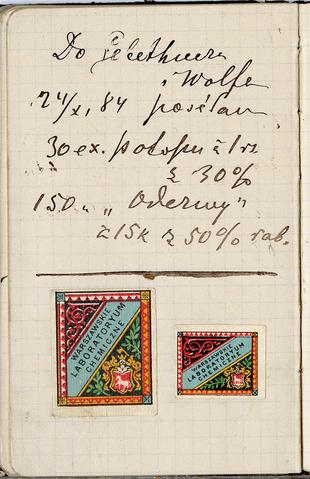 Do Gebethnera
i Wolfa
24/X, 84 posłan
30 ex. potopu à 1 rs
z 30%
150 „ „Odezwy”
à 15 k z 50% rab.
WARSZAWSKIE
LABORATORYUM
CHEMICZNE
WARSZAWSKIE
LABORATORYUM
CHEMICZNE